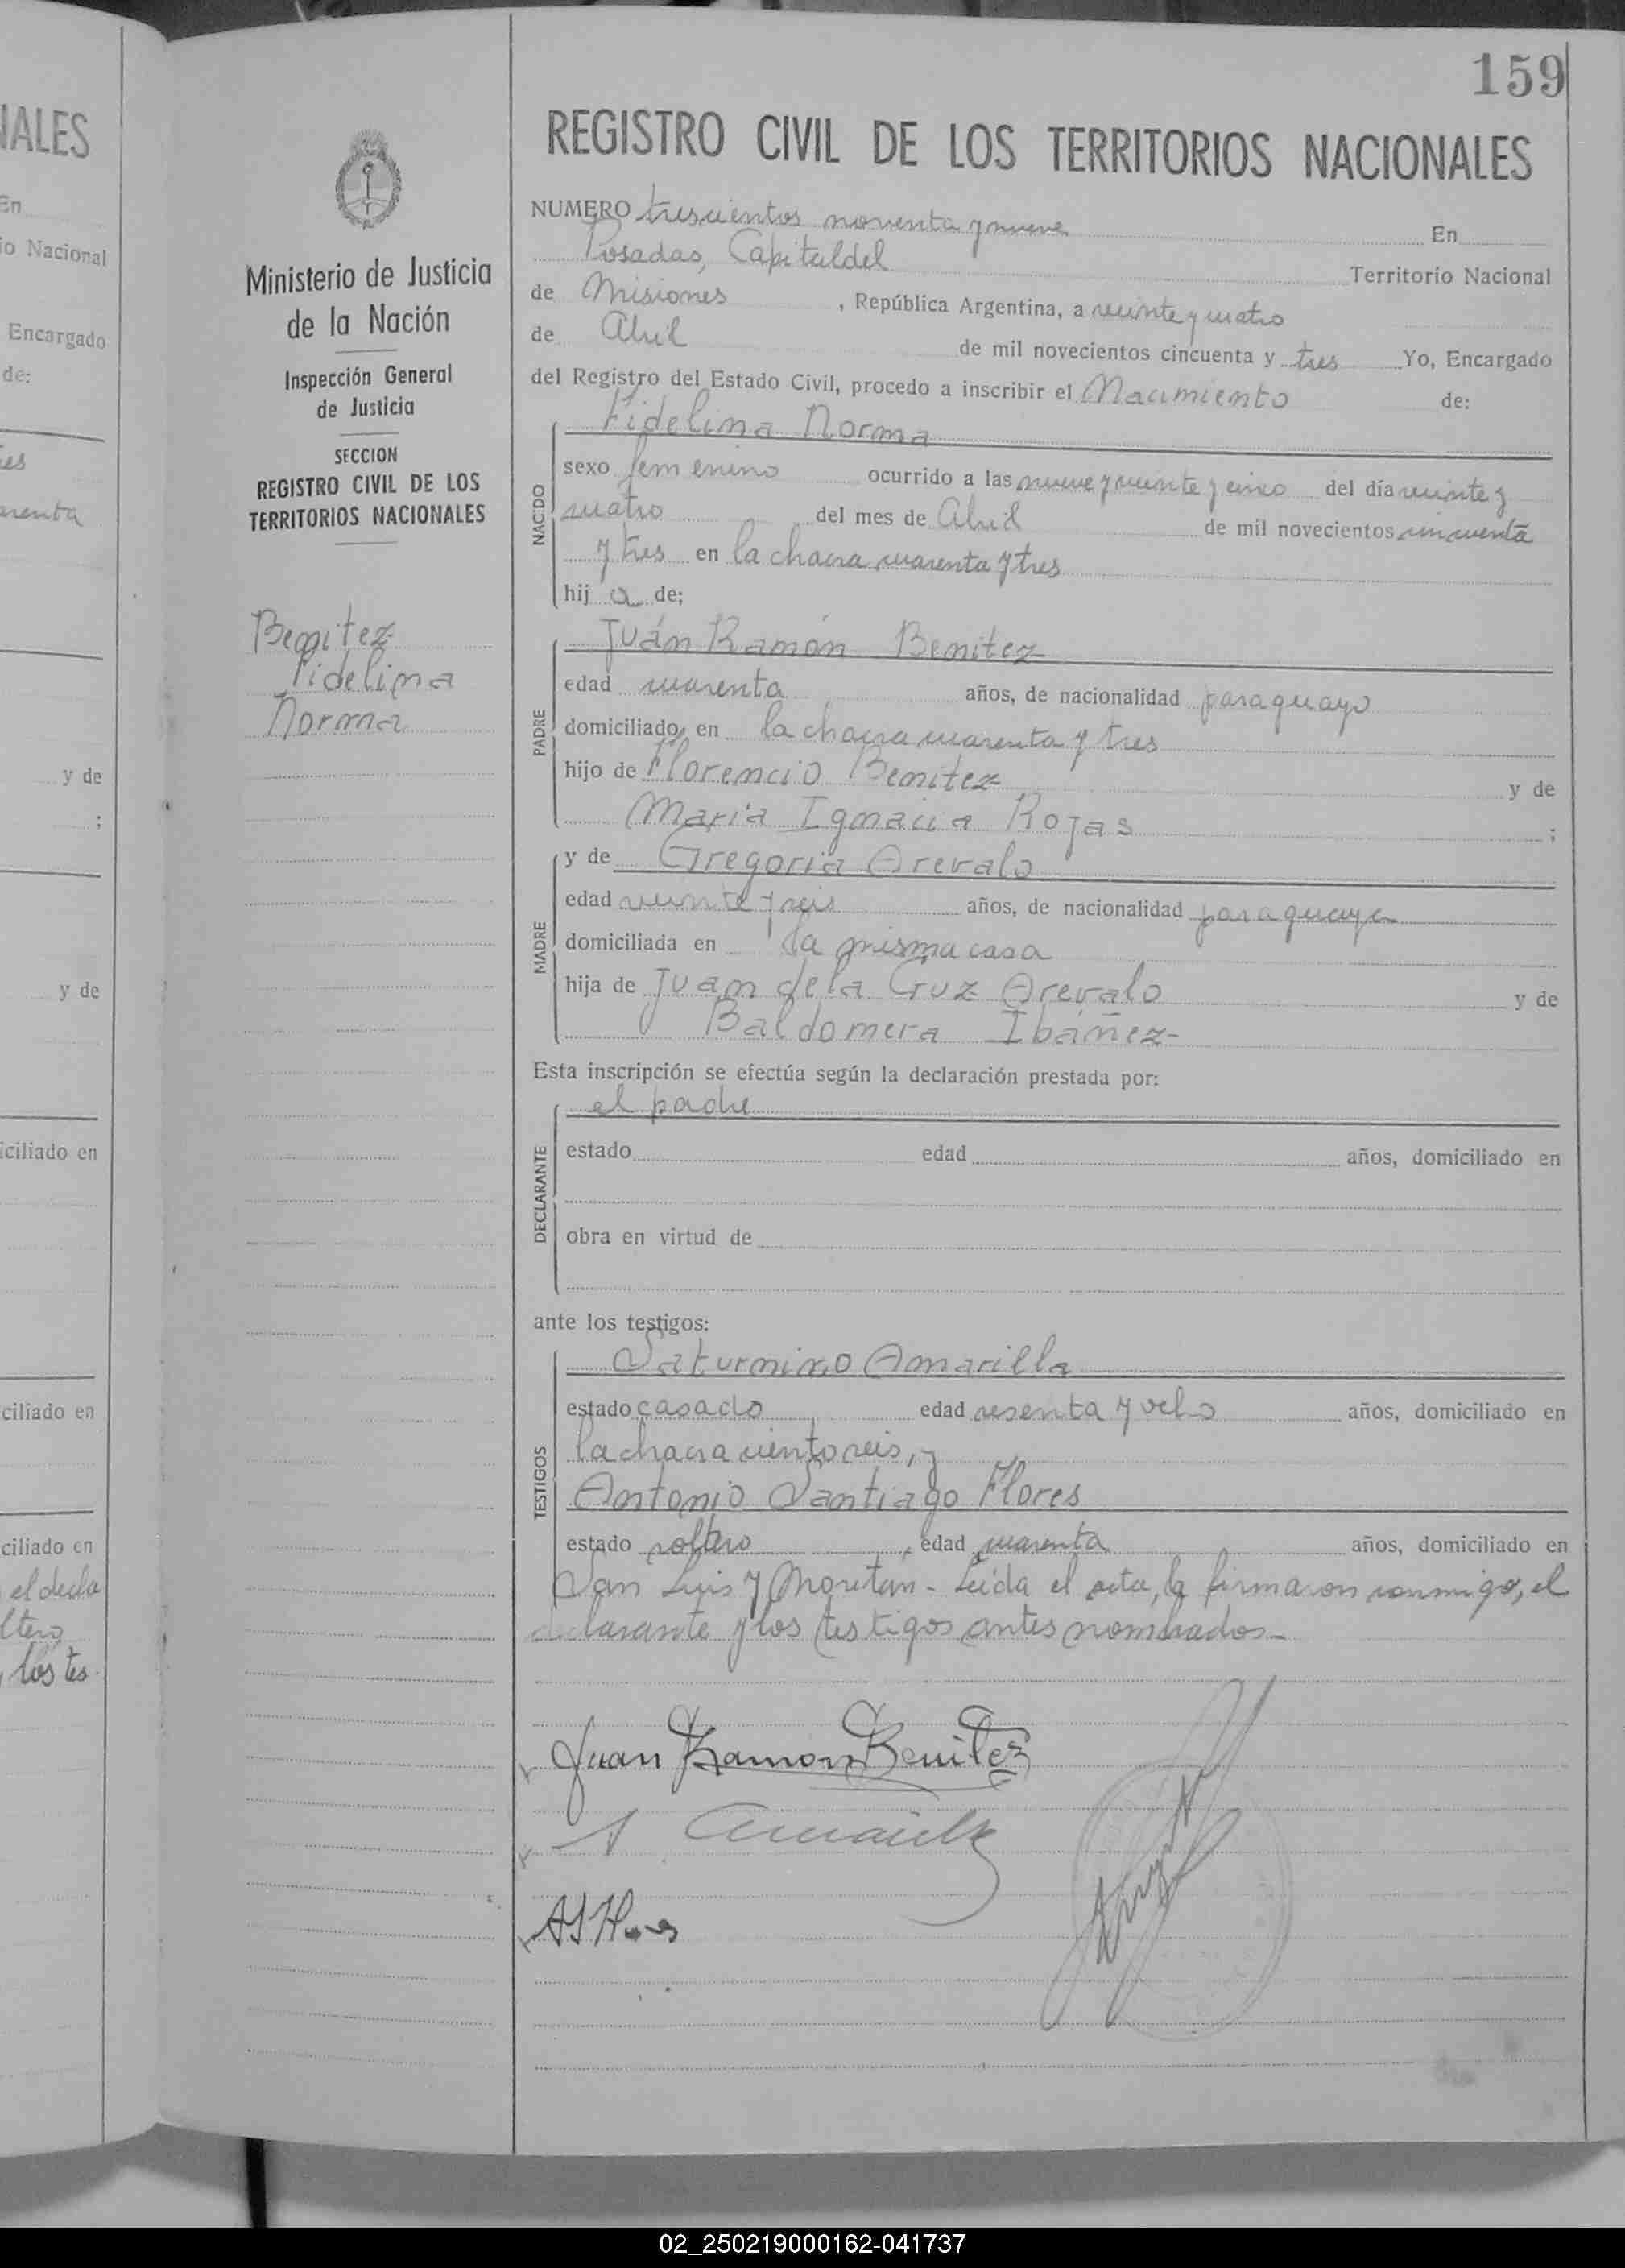 159
NALES
En
io Nacional
Encargado
de:
y de
;
y de
iciliado en
ciliado en
ciliado en
el decla
ltero
los tes
Ministerio de Justicia
de la Nación
Inspección General
de Justicia
SECCION
REGISTRO CIVIL DE LOS
TERRITORIOS NACIONALES
Benitez
Fidelina
Norma
REGISTRO CIVIL DE LOS TERRITORIOS NACIONALES
NUMERO trescientos noventa y nueve En
Posadas, Capital del Territorio Nacional
de Misiones, República Argentina, a veinte y cuatro
de Abril de mil novecientos cincuenta y tres Yo, Encargado
del Registro del Estado Civil, procedo a inscribir el Nacimiento de:
Fidelina Norma
NACIDO
sexo femenino ocurrido a las nueve y veinte y cinco del día veinte y
cuatro del mes de Abril de mil novecientos cincuenta
y tres en la chacra cuarenta y tres
hij a de;
Juán Ramón Benitez
PADRE
edad cuarenta años, de nacionalidad paraguayo
domiciliado en la chacra cuarenta y tres
hijo de Florencio Benitez y de
Maria Ignacia Rojas ;
y de Gregoria Arevalo
MADRE
edad veinte y seis años, de nacionalidad paraguaya
domiciliada en la misma casa
hija de Juan de la Cruz Arevalo y de
Baldomera Ibáñez-
Esta inscripción se efectúa según la declaración prestada por:
el padre
DECLARANTE
estado edad años, domiciliado en
obra en virtud de
ante los testigos:
Saturnino Amarilla
TESTIGOS
estado casado edad sesenta y ocho años, domiciliado en
la chacra ciento seis, y
Antonio Santiago Flores
estado soltero, edad cuarenta años, domiciliado en
San Luis y Moritán - Leida el acta, la firmaron conmigo, el
declarante y los testigos antes nombrados-
Juan Ramon Benitez
02_250219000162-041737